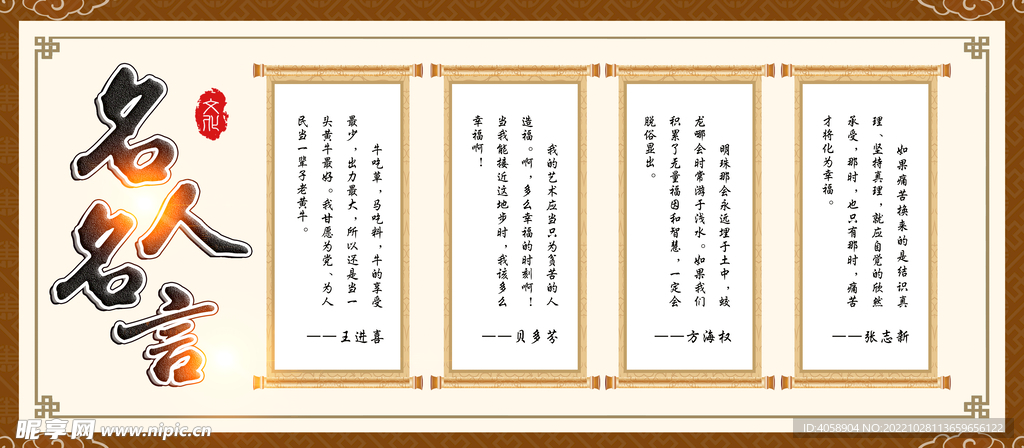 名人
名言
文化
牛吃草，马吃料，牛的享受
最少，出力最大，所以还是当一
头黄牛最好。我甘愿为党、为人
民当一辈子老黄牛。
——王进喜
我的艺术应当只为贫苦的人
造福。啊，多么幸福的时刻啊！
当我能接近这地步时，我该多么
幸福啊！
——贝多芬
明珠那会永远埋于土中，蛟
龙哪会时常游于浅水。如果我们
积累了无量福因和智慧，一定会
脱俗显出。
——方海权
如果痛苦换来的是结识真
理、坚持真理，就应自觉的欣然
承受，那时，也只有那时，痛苦
才将化为幸福。
——张志新
昵享网 www.nipic.cn
ID:4058904 NO:20221028113659656122